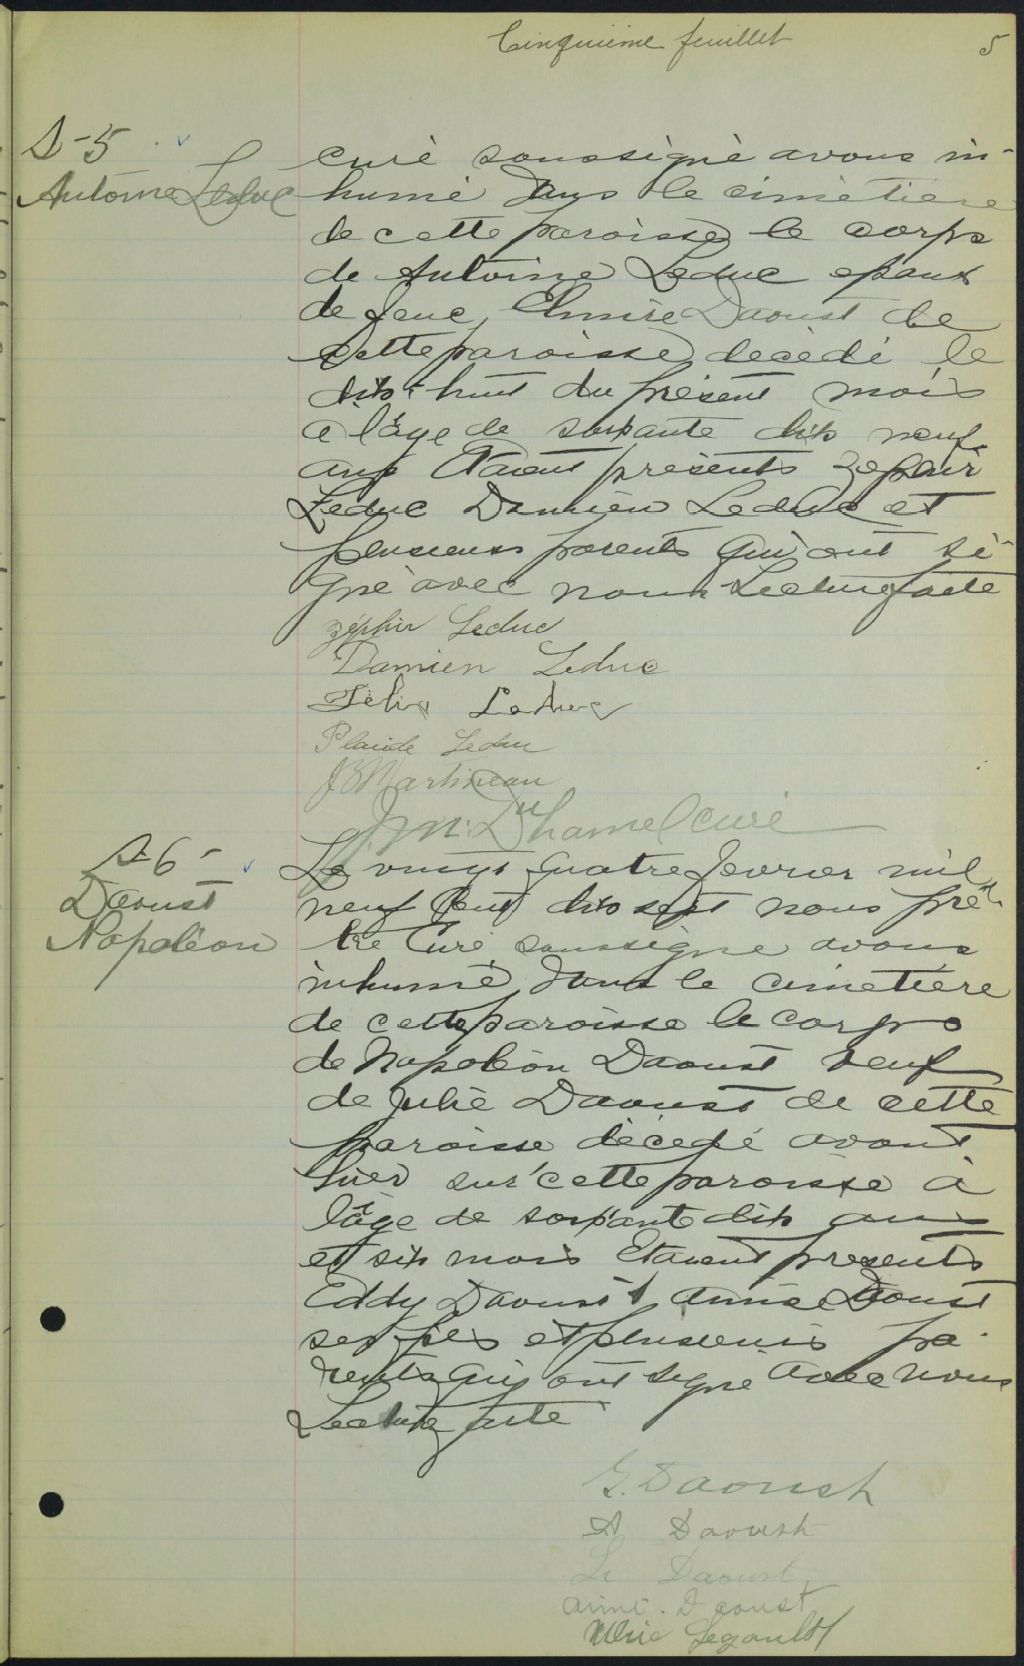 Cinquième feuillet 5
S-5
Antoine Leduc
curé soussigné avons in-
humé dans le cimetiere
de cette paroisse le corps
de Antoine Leduc epoux
de feue Elmire Daoust de
cette paroisse décédé le
dix-huit du présent mois
a l'âge de soixante dix neuf
ans Etaient présents Zephir
Leduc Damien Leduc et
plusieurs parents qui ont si-
gné avec nous Lecture faite
Zéphir Leduc
Damien Leduc
Félix Leduc
Placide Leduc
J B Martineau
J. M. DuHamel curé
S-6-
Daoust
Napoléon
Le vingt quatre fevrier mil
neuf cent dix sept nous prê-
tre Curé soussigné avons
inhumé dans le cimetiere
de cette paroisse le corps
de Napoléon Daoust veuf
de Julie Daoust de cette
paroisse décédé avant
hier sur cette paroisse à
l'âge de soixante dix ans
et six mois Etaient presents
Eddy Daoust Aimé Daoust
ses fils et plusieurs pa-
rents qui ont signé avec nous
Lecture faite
G. Daoust
A Daoust
Daoust
Aimé. Daoust
Legault